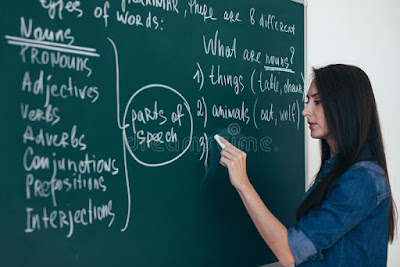 types of words:
GRAMMAR, there are 8 different
Nouns
Pronouns
Adjectives
Verbs
Adverbs
Conjunctions
Prepositions
Interjections
parts of
speech
What are nouns?
1) things (table, 
2) animals (cat, wolf)
3)
dreamstime